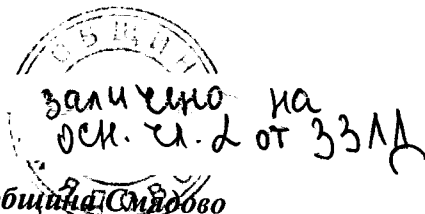 ОБЩИН
заличено на
осн. чл. 2 от ЗЗЛД
бщина Смядово